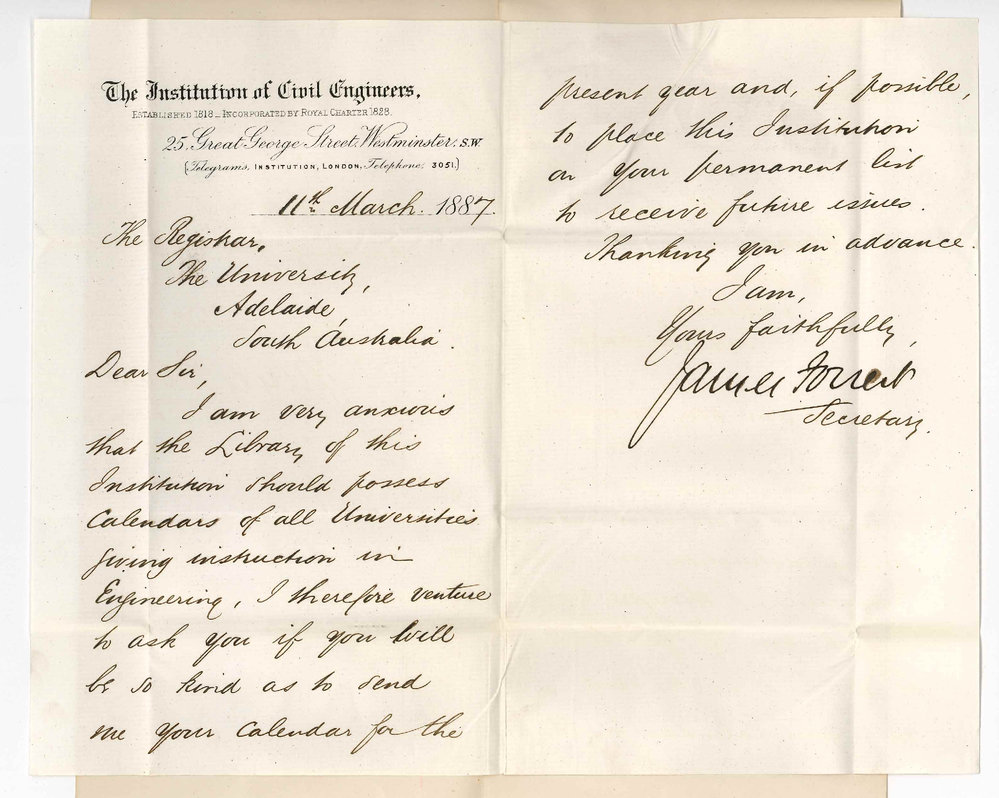 The Institution of Civil Engineers,
ESTABLISHED 1818 – INCORPORATED BY ROYAL CHARTER 1828.
25, Great George Street, Westminster, S.W.
(Telegrams, INSTITUTION, LONDON, Telephone, 3051.)
11th March 1887.
The Registrar,
The University,
Adelaide,
South Australia.
Dear Sir,
I am very anxious
that the Library of this
Institution should possess
Calendars of all Universities
giving instruction in
Engineering, I therefore venture
to ask you if you will
be so kind as to send
me your Calendar for the
present year and, if possible,
to place this Institution
on your permanent list
to receive future issues.
Thanking you in advance.
I am,
Yours faithfully,
James Forrest
Secretary.